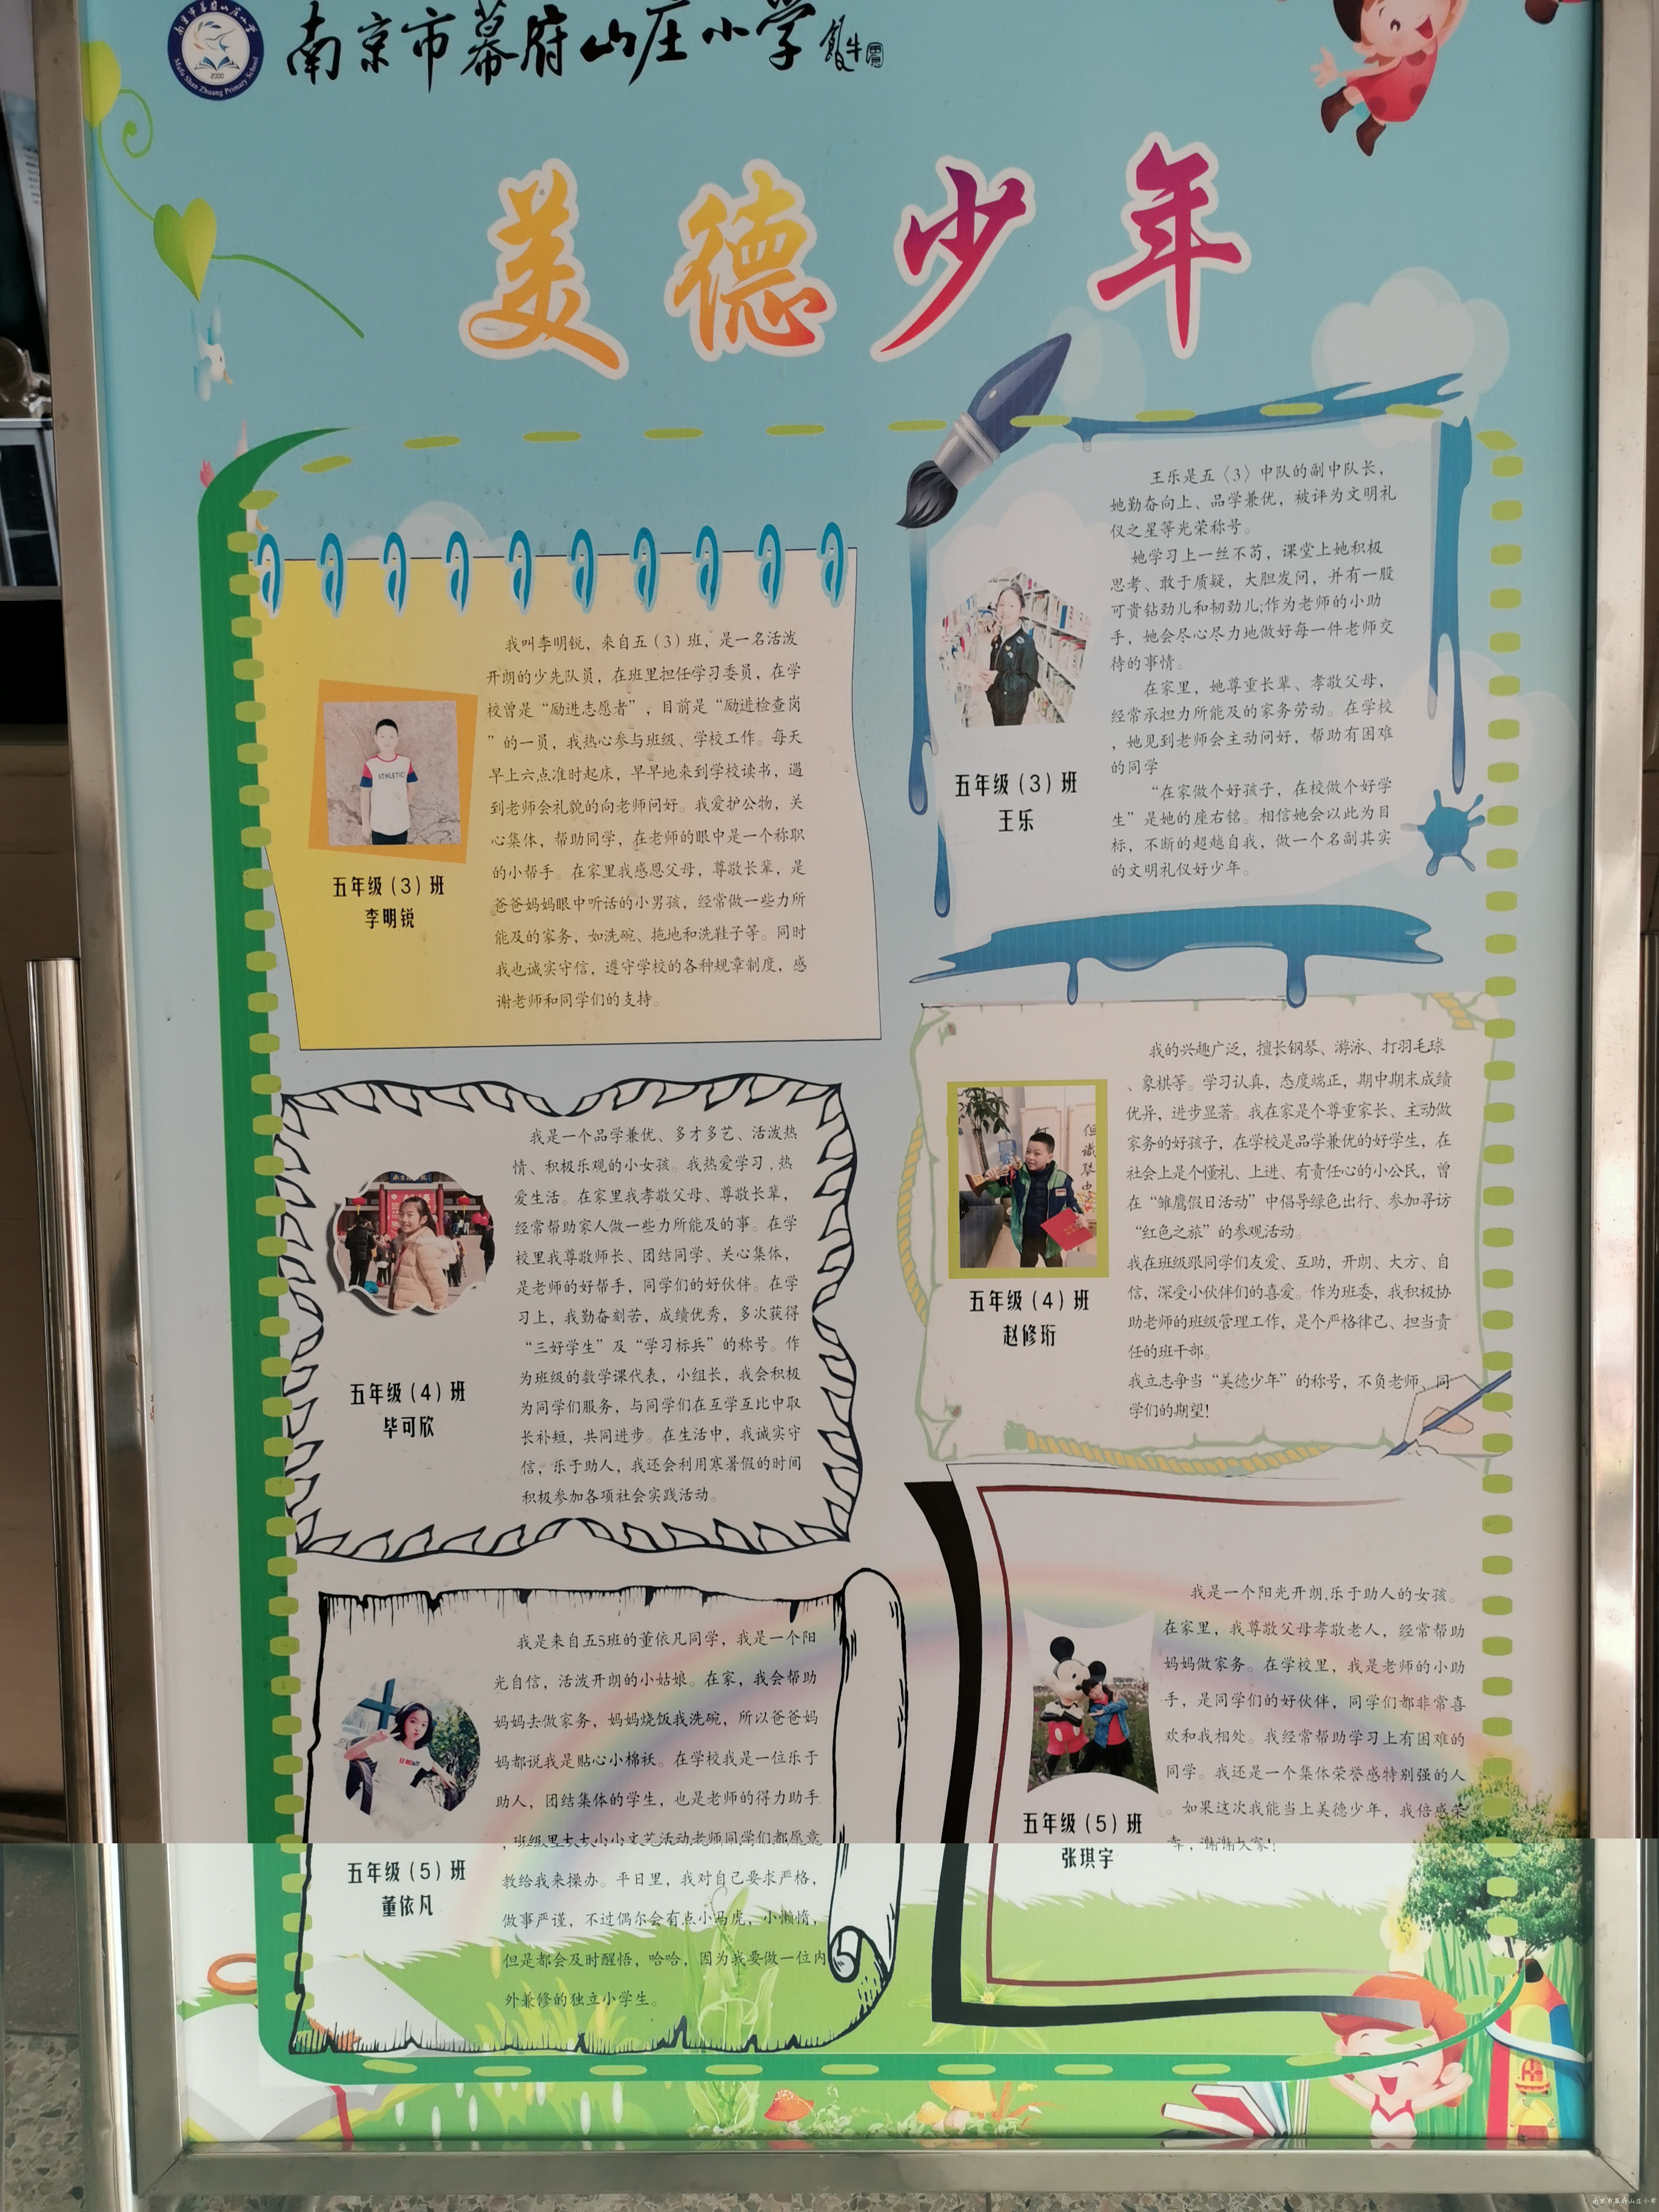 南京市幕府山庄小学
Mufu Shan Zhuang Primary School
2000
美德少年
我叫李明锐，来自五（3）班，是一名活泼
开朗的少先队员，在班里担任学习委员，在学
校曾是“励进志愿者”，目前是“励进检查岗
”的一员，我热心参与班级、学校工作。每天
早上六点准时起床，早早地来到学校读书，遇
到老师会礼貌的向老师问好。我爱护公物，关
心集体，帮助同学，在老师的眼中是一个称职
的小帮手。在家里我感恩父母，尊敬长辈，是
爸爸妈妈眼中听话的小男孩，经常做一些力所
能及的家务，如洗碗、拖地和洗鞋子等。同时
我也诚实守信，遵守学校的各种规章制度，感
谢老师和同学们的支持。
ATHLETIC
五年级（3）班
李明锐
王乐是五〈3〉中队的副中队长，
她勤奋向上、品学兼优，被评为文明礼
仪之星等光荣称号。
她学习上一丝不苟，课堂上她积极
思考、敢于质疑，大胆发问，并有一股
可贵钻劲儿和韧劲儿;作为老师的小助
手，她会尽心尽力地做好每一件老师交
待的事情。
在家里，她尊重长辈、孝敬父母，
经常承担力所能及的家务劳动。在学校
，她见到老师会主动问好，帮助有困难
的同学
“在家做个好孩子，在校做个好学
生”是她的座右铭。相信她会以此为目
标，不断的超越自我，做一个名副其实
的文明礼仪好少年。
五年级（3）班
王乐
我是一个品学兼优、多才多艺、活泼热
情、积极乐观的小女孩。我热爱学习，热
爱生活。在家里我孝敬父母、尊敬长辈，
经常帮助家人做一些力所能及的事。在学
校里我尊敬师长、团结同学、关心集体，
是老师的好帮手，同学们的好伙伴。在学
习上，我勤奋刻苦，成绩优秀，多次获得
“三好学生”及“学习标兵”的称号。作
为班级的数学课代表，小组长，我会积极
为同学们服务，与同学们在互学互比中取
长补短，共同进步。在生活中，我诚实守
信，乐于助人，我还会利用寒暑假的时间
积极参加各项社会实践活动。
五年级（4）班
毕可欣
我的兴趣广泛，擅长钢琴、游泳、打羽毛球
、象棋等。学习认真，态度端正，期中期末成绩
优异，进步显著。我在家是个尊重家长、主动做
家务的好孩子，在学校是品学兼优的好学生，在
社会上是个懂礼、上进、有责任心的小公民，曾
在“雏鹰假日活动”中倡导绿色出行、参加寻访
“红色之旅”的参观活动。
我在班级跟同学们友爱、互助、开朗、大方、自
信，深受小伙伴们的喜爱。作为班委，我积极协
助老师的班级管理工作，是个严格律己、担当责
任的班干部。
我立志争当“美德少年”的称号，不负老师、同
学们的期望!
五年级（4）班
赵修珩
我是来自五5班的董依凡同学，我是一个阳
光自信，活泼开朗的小姑娘。在家，我会帮助
妈妈去做家务，妈妈烧饭我洗碗，所以爸爸妈
妈都说我是贴心小棉袄。在学校我是一位乐于
助人，团结集体的学生，也是老师的得力助手
，班级里大大小小文艺活动老师同学们都愿意
教给我来操办。平日里，我对自己要求严格，
做事严谨，不过偶尔会有点小马虎，小懒惰，
但是都会及时醒悟，哈哈，因为我要做一位内
外兼修的独立小学生。
五年级（5）班
董依凡
我是一个阳光开朗,乐于助人的女孩。
在家里，我尊敬父母孝敬老人，经常帮助
妈妈做家务。在学校里，我是老师的小助
手，是同学们的好伙伴，同学们都非常喜
欢和我相处。我经常帮助学习上有困难的
同学。我还是一个集体荣誉感特别强的人
。如果这次我能当上美德少年，我倍感荣
幸，谢谢大家!
五年级（5）班
张琪宇
南京市幕府山庄小学